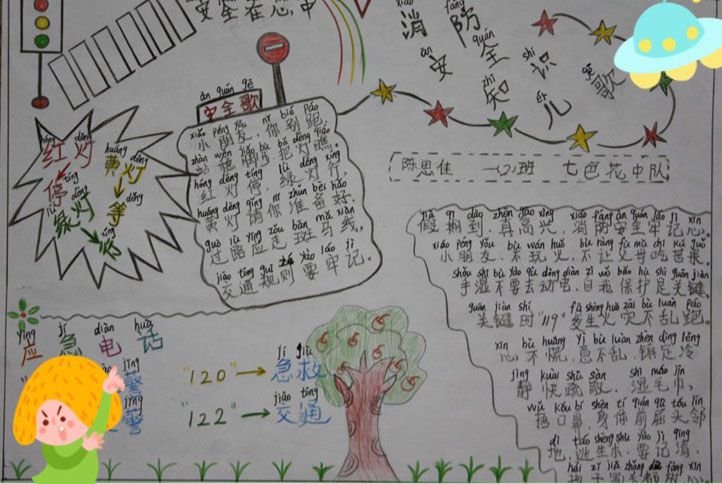 安全在心中
xiāo fáng ān quán zhī shi ér gē
消防安全知识儿歌
ān quán gē
安全歌
xiǎo péng yǒu nǐ bié pǎo
小朋友,你别跑,
zhàn wěn jiǎo bù bǎ dēng qiáo
站稳脚步把灯瞧。
hóng dēng tíng lǜ dēng xíng
红灯停,绿灯行,
huáng dēng qǐng nǐ zhǔn bèi hǎo
黄灯请你准备好。
guò lù yīng zǒu bān mǎ xiàn
过路应走斑马线,
jiāo tōng guī zé yào láo jì
交通规则要牢记。
hóng dēng
红灯
停
huáng dēng
黄灯
děng
等
lǜ dēng
绿灯
陈思佳 一(2)班 七色花中队
jià qī dào zhēn gāo xìng xiāo fáng ān quán láo jì xīn
假期到,真高兴,消防安全牢记心。
xiǎo péng yǒu bù wán huǒ bù ràng fù mǔ chī kǔ guǒ
小朋友,不玩火,不让父母吃苦果。
shǒu shī bù yào qù dòng diàn zì wǒ bǎo hù shì guān jiàn
手湿不要去动电,自我保护是关键。
guān jiàn shí fā shēng huǒ zāi bù luàn pǎo
关键时"119",发生火灾不乱跑。
xīn bù huāng yì bù luàn zhèn dìng lěng
心不慌,意不乱,镇定冷
jìng kuài shū sàn shī máo jīn
静快疏散,湿毛巾,
wǔ kǒu bí shēn tǐ qián qū tóu lín
捂口鼻,身体前屈头邻
dì táo shēng yào jì qīng
地,逃生 要记清,
hái zi fàng xīn
孩子 放心
yìng jí diàn huà
应急电话
jǐng
警
jǐng
警
jí jiù
"120"→急救
jiāo tōng
"122"→交通